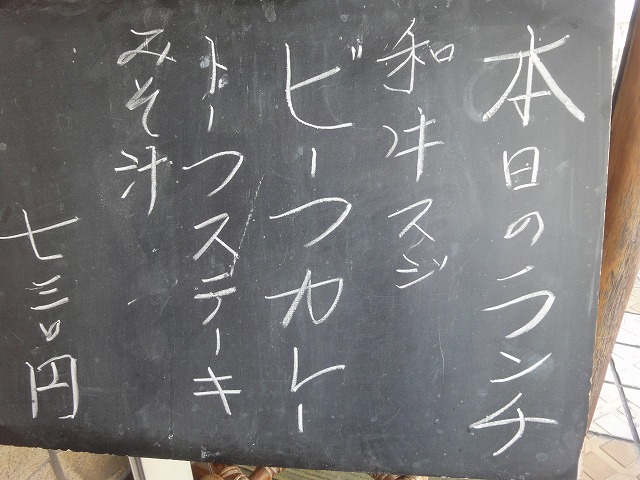 本日のランチ
和牛スジ
ビーフカレー
トーフステーキ
みそ汁
七三〇円